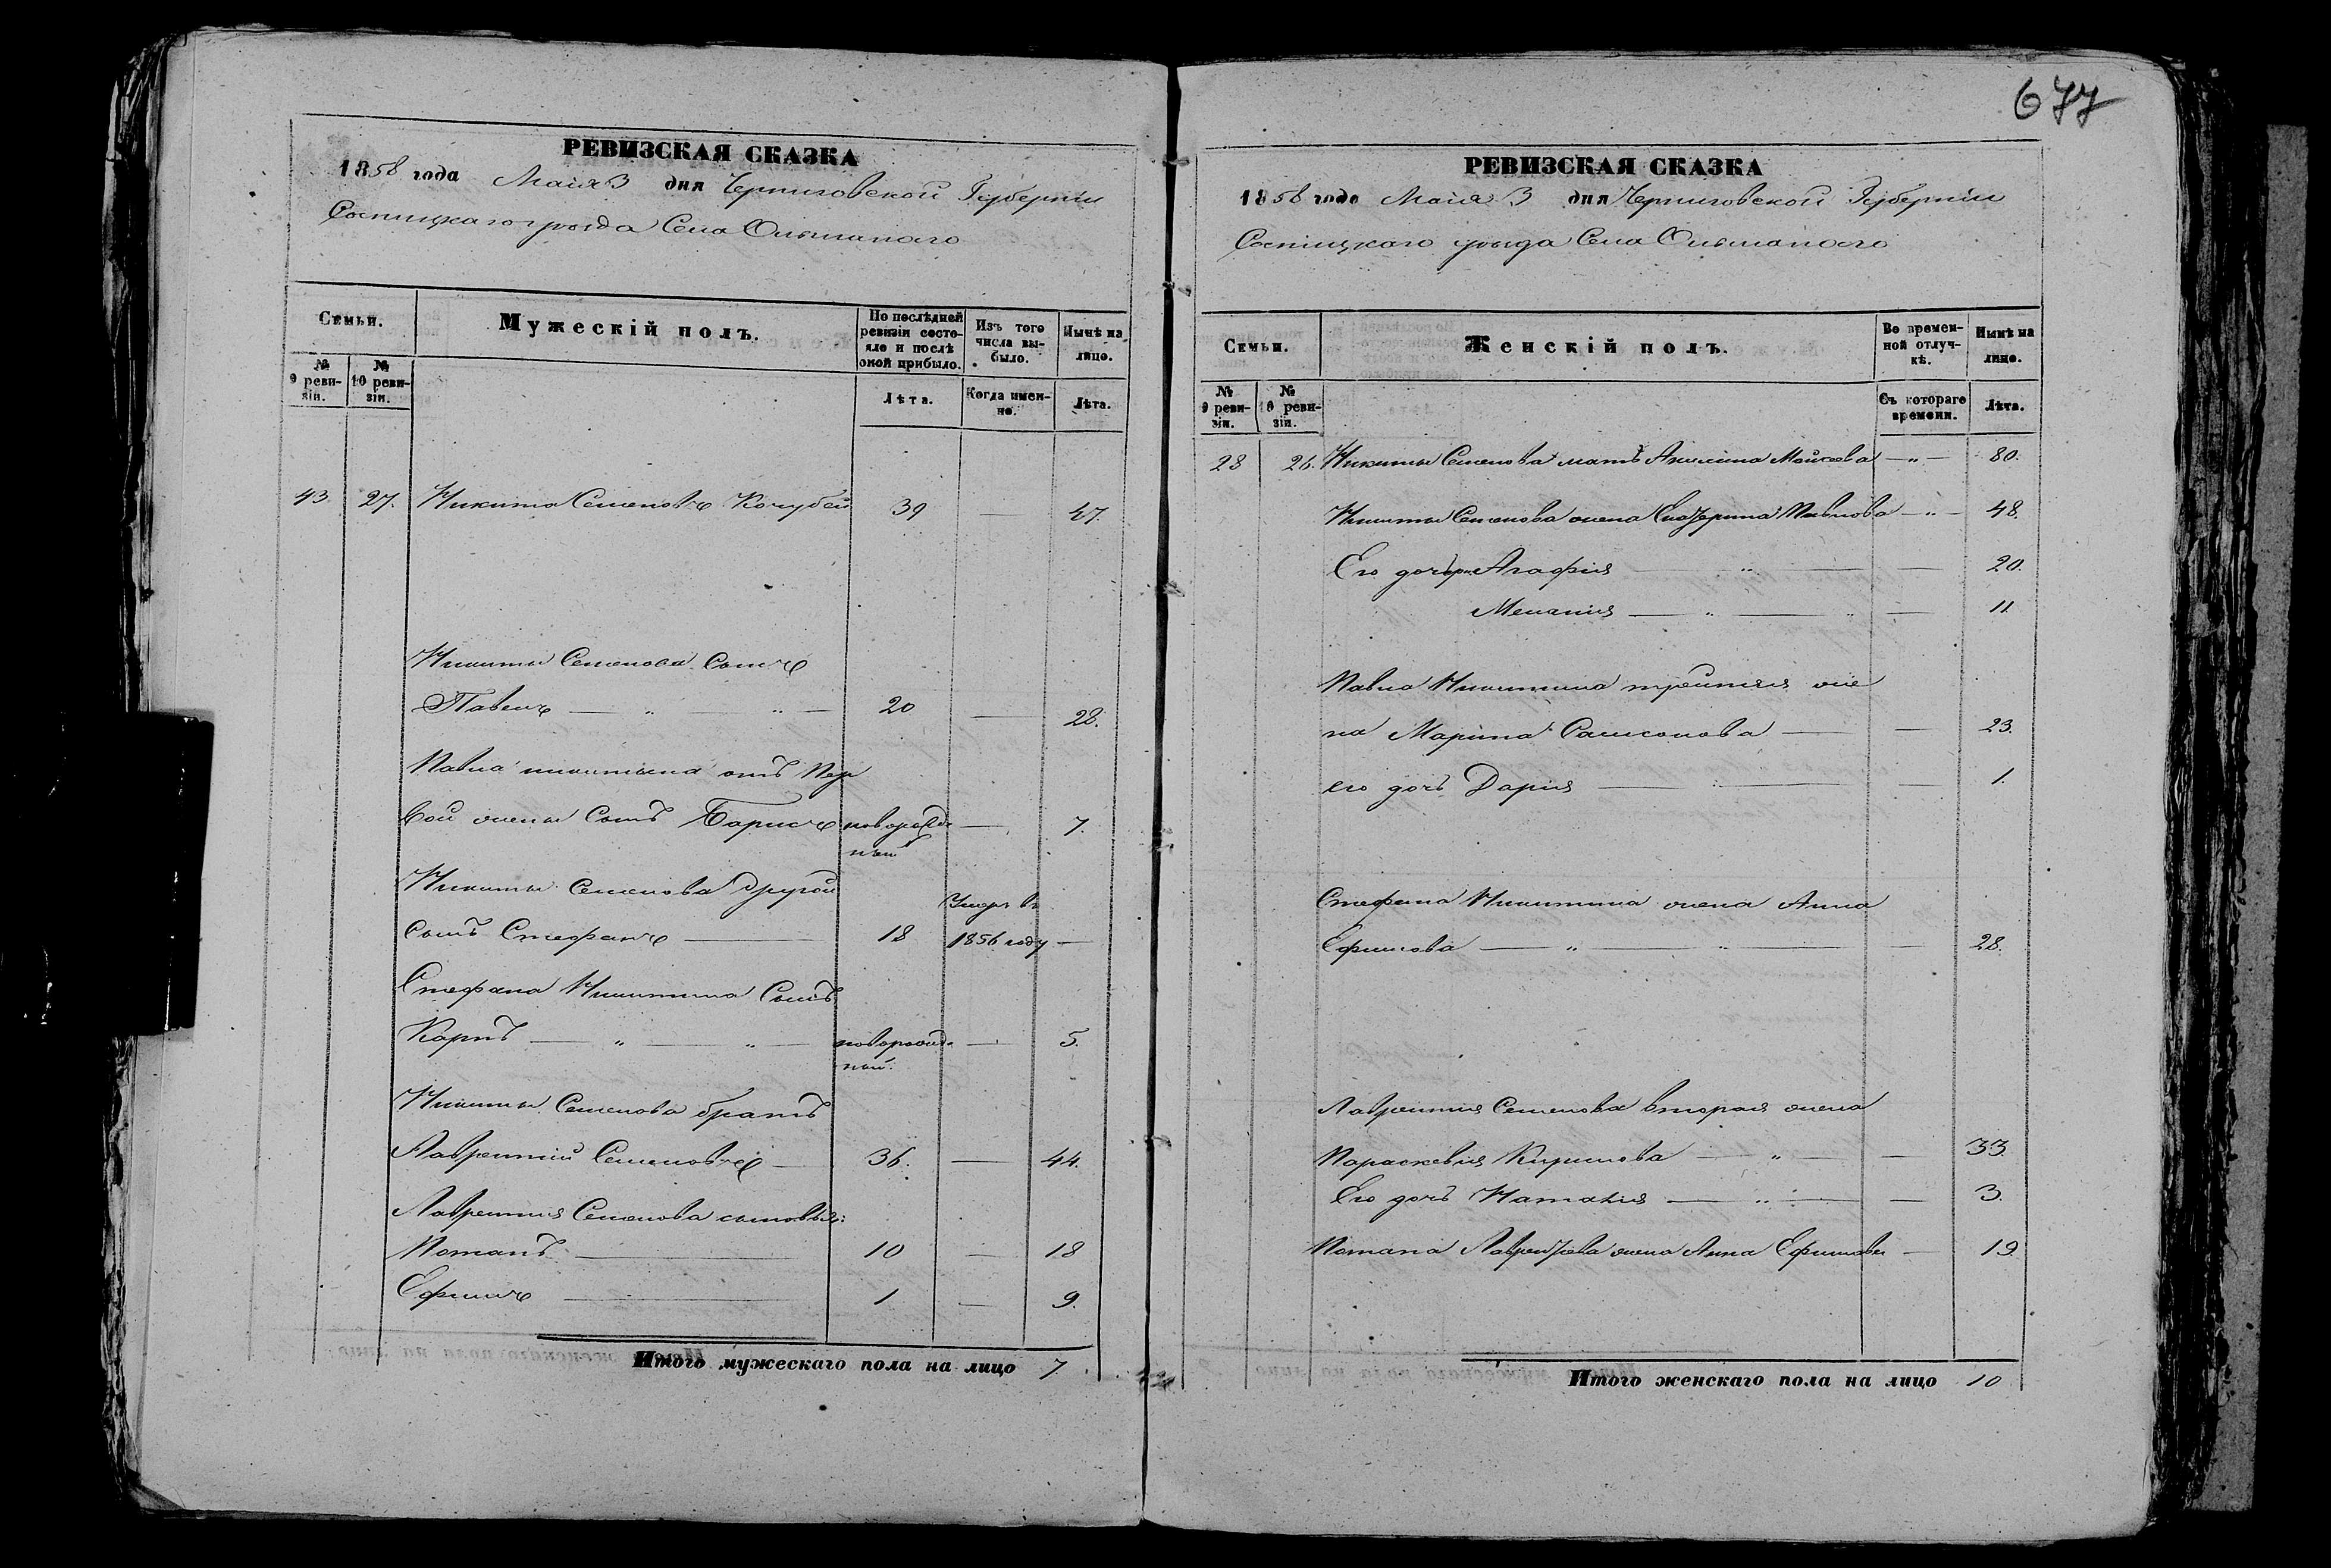 677
РЕВИЗСКАЯ СКАЗКА
1858 года Мая 3 дня Черниговской Губернiи
Сосницкаго уѣзда Села Ольшанаго
Семьи.
Мужескiй полъ.
По послѣдней ревизiи состояло и послѣ оной прибыло.
Изъ того числа выбыло.
Нынѣ на лицо.
№ 9 ревизiи.
№ 10 ревизiи.
Лѣта.
Когда именно.
Лѣта.
43 27. Никита Семеновъ Кочубей 39 — 47.
Никиты Семенова сынъ
Павелъ — " — " — 20 — 28.
Павла Никитина отъ пер
вой жены сынъ Борисъ новорожденный — 7.
Никиты Семенова другой
сынъ Стефанъ — 18 Умеръ въ 1856 году —
Стефана Никитина сынъ
Карпъ — " — " — новорожденный — 5.
Никиты Семенова братъ
Лаврентiй Семеновъ — 36. — 44.
Лаврентiя Семенова сыновья:
Потапъ — 10 — 18
Ефимъ — 1 — 9.
Итого мужескаго пола на лицо 7.
РЕВИЗСКАЯ СКАЗКА
1858 года Мая 3 дня Черниговской Губернiи
Сосницкаго уѣзда Села Ольшанаго
Семьи.
Женскiй полъ.
Во временной отлучкѣ.
Нынѣ на лицо.
№ 9 ревизiи.
№ 10 ревизiи.
Съ котораго времени.
Лѣта.
28 26. Никиты Семенова мать Акилина Моисеева — " — 80.
Никиты Семенова жена Екатерина Павлова — " — 48.
Его дочери Агафiя — " — 20.
Меланiя — " — " — 11
Павла Никитина третья же
на Марина Самсонова — 23.
его дочь Дарiя — " — 1.
Стефана Никитина жена Анна
Ефимова — " — " — 28.
Лаврентiя Семенова вторая жена
Параскевiя Кирилова — " — 33.
Его дочь Наталiя — " — 3.
Потапа Лаврентьева жена Анна Ефимова — 19
Итого женскаго пола на лицо 10